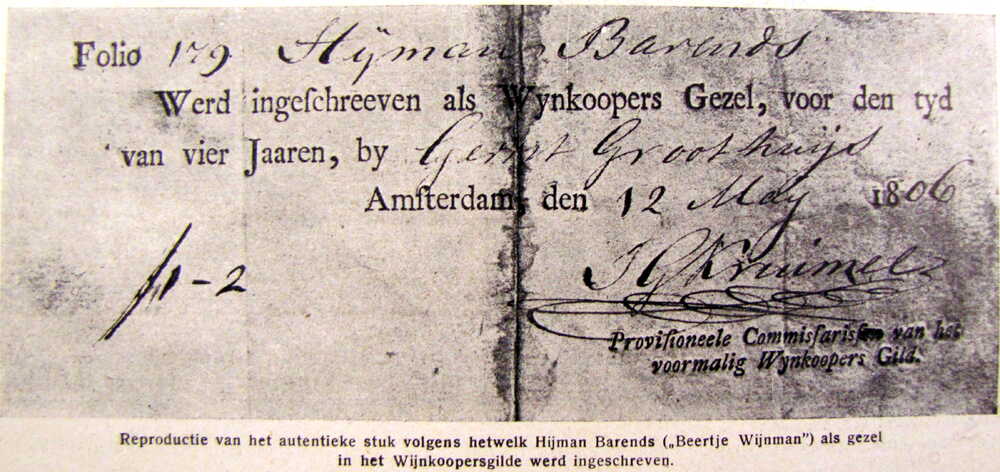 Folio 179 Hÿman Barends
Werd ingeſchreeven als Wynkoopers Gezel, voor den tyd
van vier Jaaren, by Gerrit Groothuijs
Amſterdam, den 12 May 1806
JG Kruimel
ƒ1-2
Proviſioneele Commiſſariſſen van het
voormalig Wynkoopers Gild.
Reproductie van het autentieke stuk volgens hetwelk Hijman Barends („Beertje Wijnman”) als gezel
in het Wijnkoopersgilde werd ingeschreven.